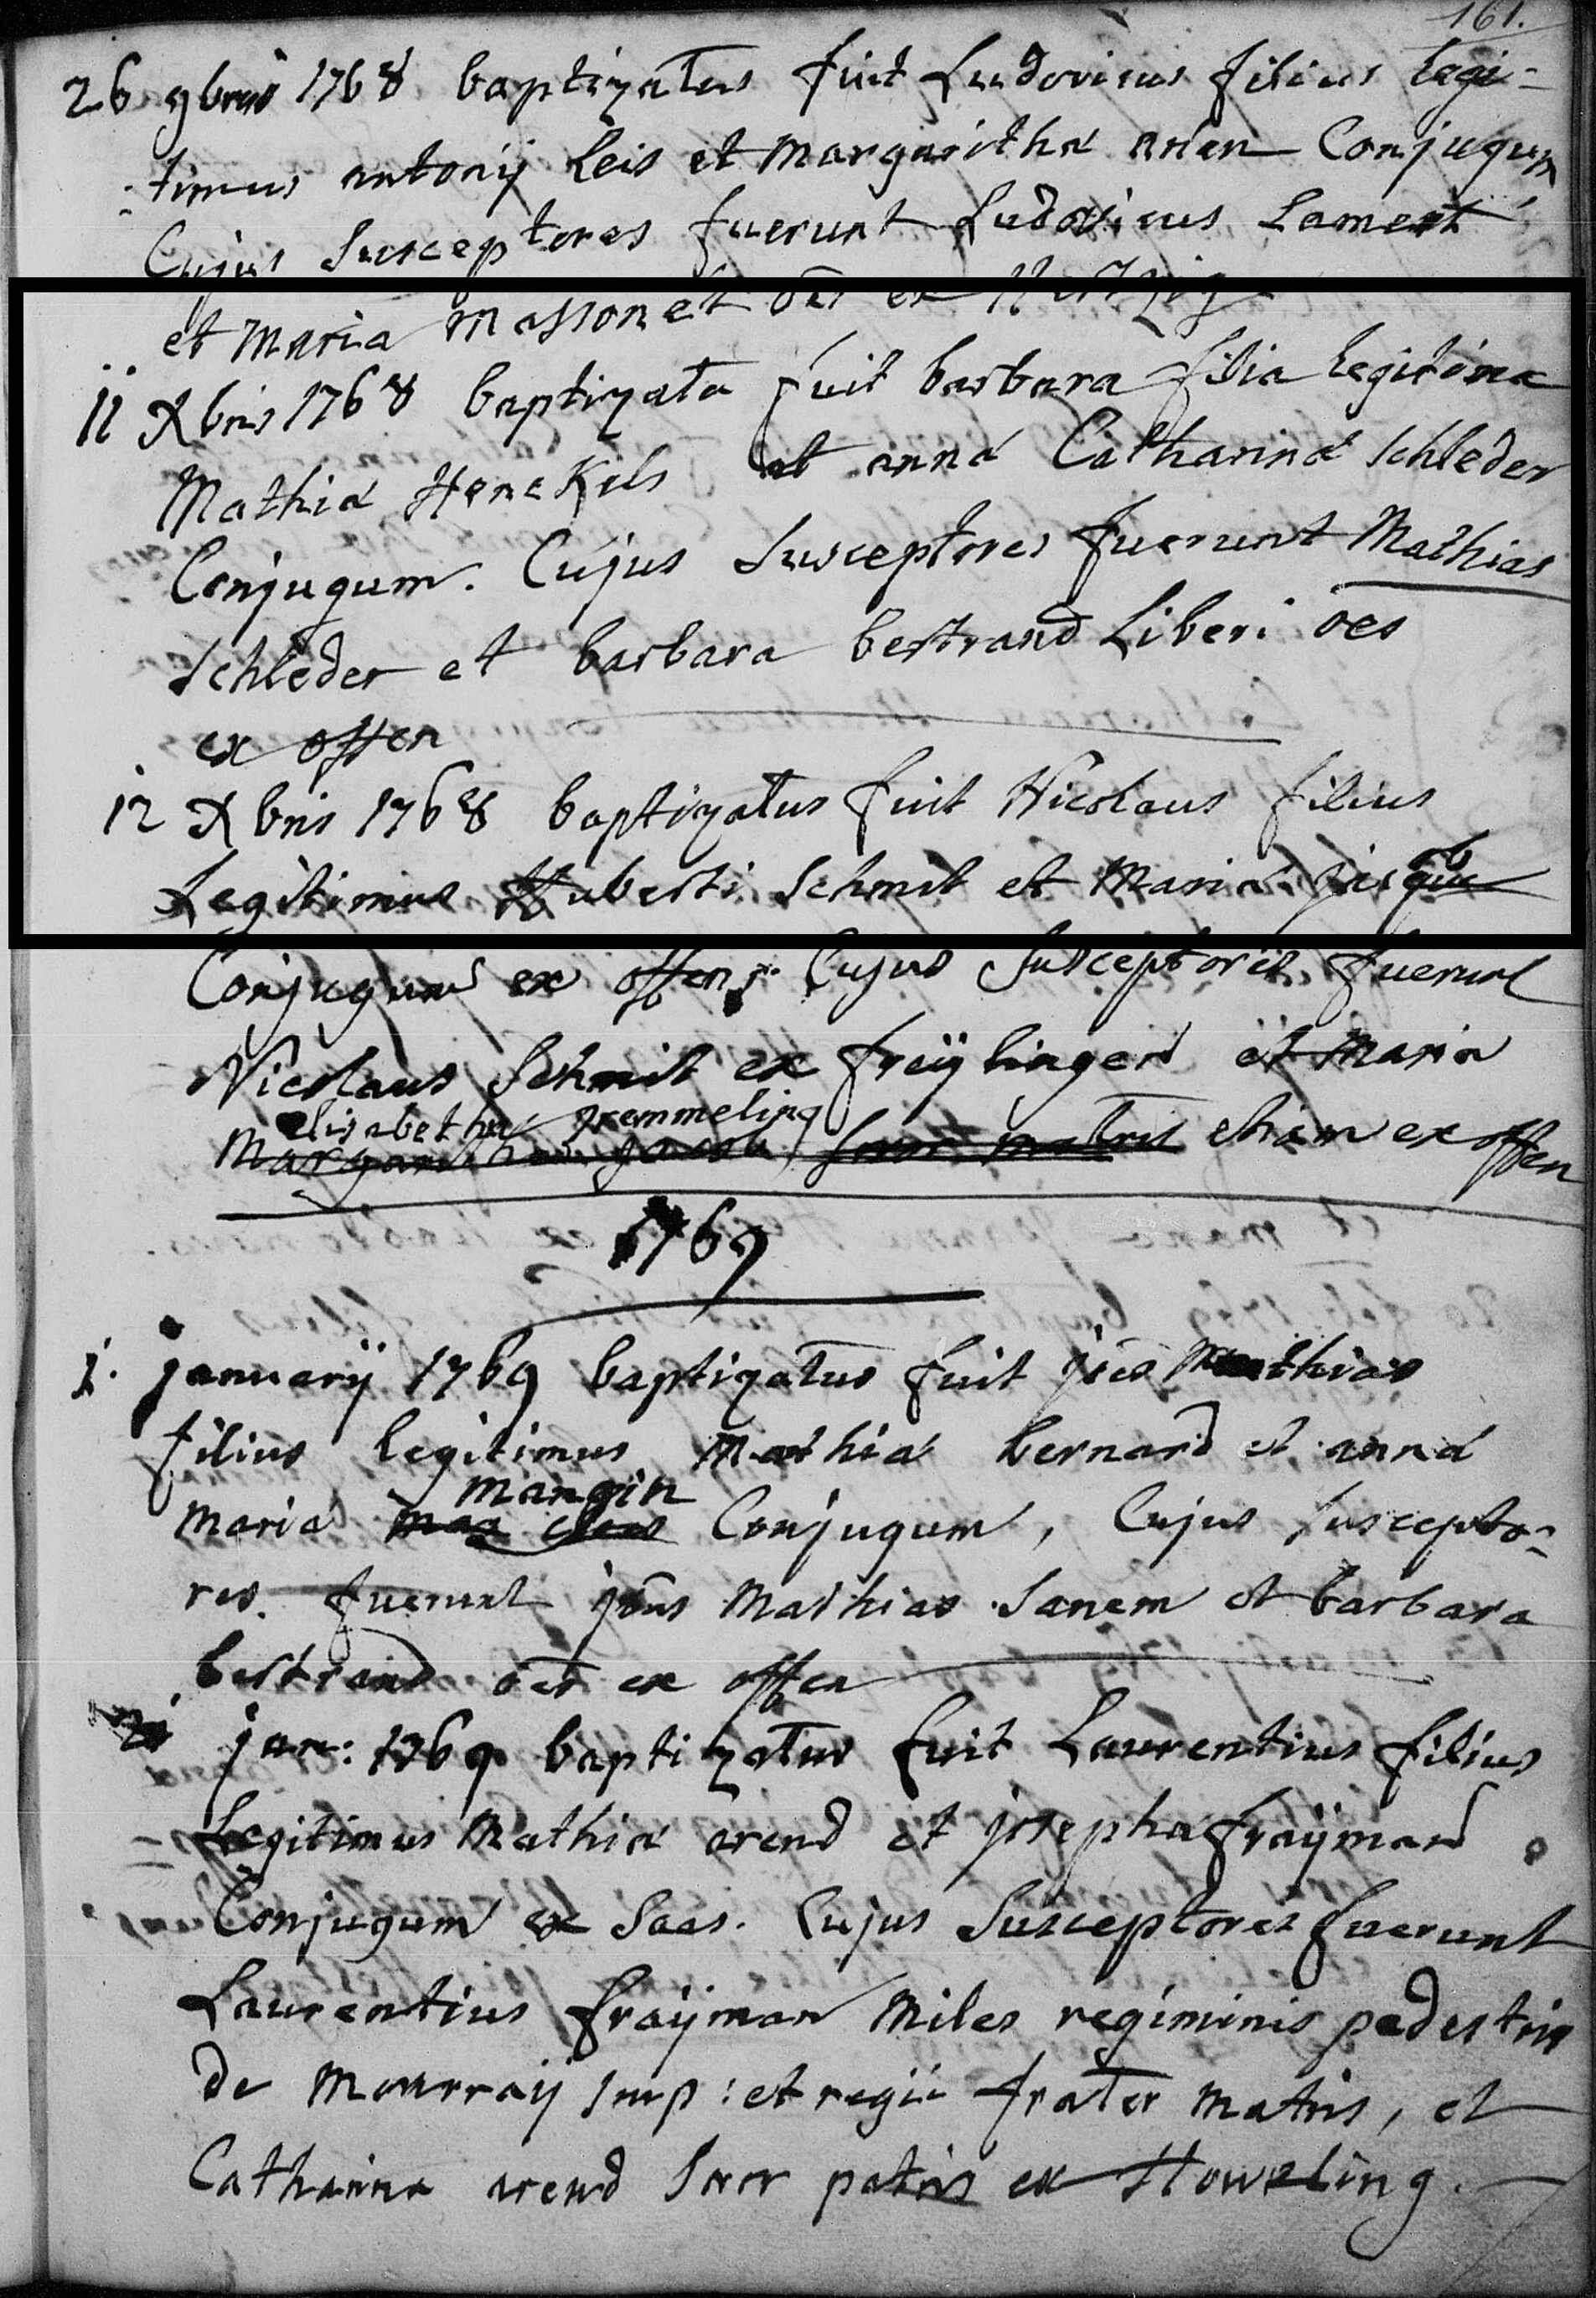 161.
26 9bris 1768 baptizatus fuit Ludovicus filius legi-
timus antonij Leis et Margaritha arlen Conjugum
Cujus Susceptores fuerunt Ludovicus Lament
et Maria Massonet oēs ex
11 Xbris 1768 baptizata fuit barbara filia legitima
Mathiæ Henckels et annæ Catharinæ Schleder
Conjugum. Cujus Susceptores fuerunt Mathias
Schleder et barbara bertrand Liberi oes
ex offen
12 Xbris 1768 baptizatus fuit Nicolaus filius
Legitimus Huberti Schmit et Mariæ
Conjugum ex offen. Cujus Susceptores fuerunt
Nicolaus Schmit ex freÿlingen et Maria
elisabetha gremmeling
Margaretha Jacob, Soror matris etiam ex offen
1769
1. januarij 1769 baptizatus fuit jōes Mathias
filius legitimus Mathiæ bernard et annæ
mangin
Mariæ Conjugum, Cujus Suscepto-
res fuerunt jōes Mathias Sanem et barbara
bertrand oēs ex offen
21 jan: 1769 baptizatus fuit Laurentius filius
Legitimus Mathiæ arend et josephæ fraÿmand
Conjugum ex Saas. Cujus Susceptores fuerunt
Laurentius fraÿman Miles regiminis pedestris
de Mourraÿ Imp: et regii frater matris, et
Catharina arend Soror patris ex Howeling.